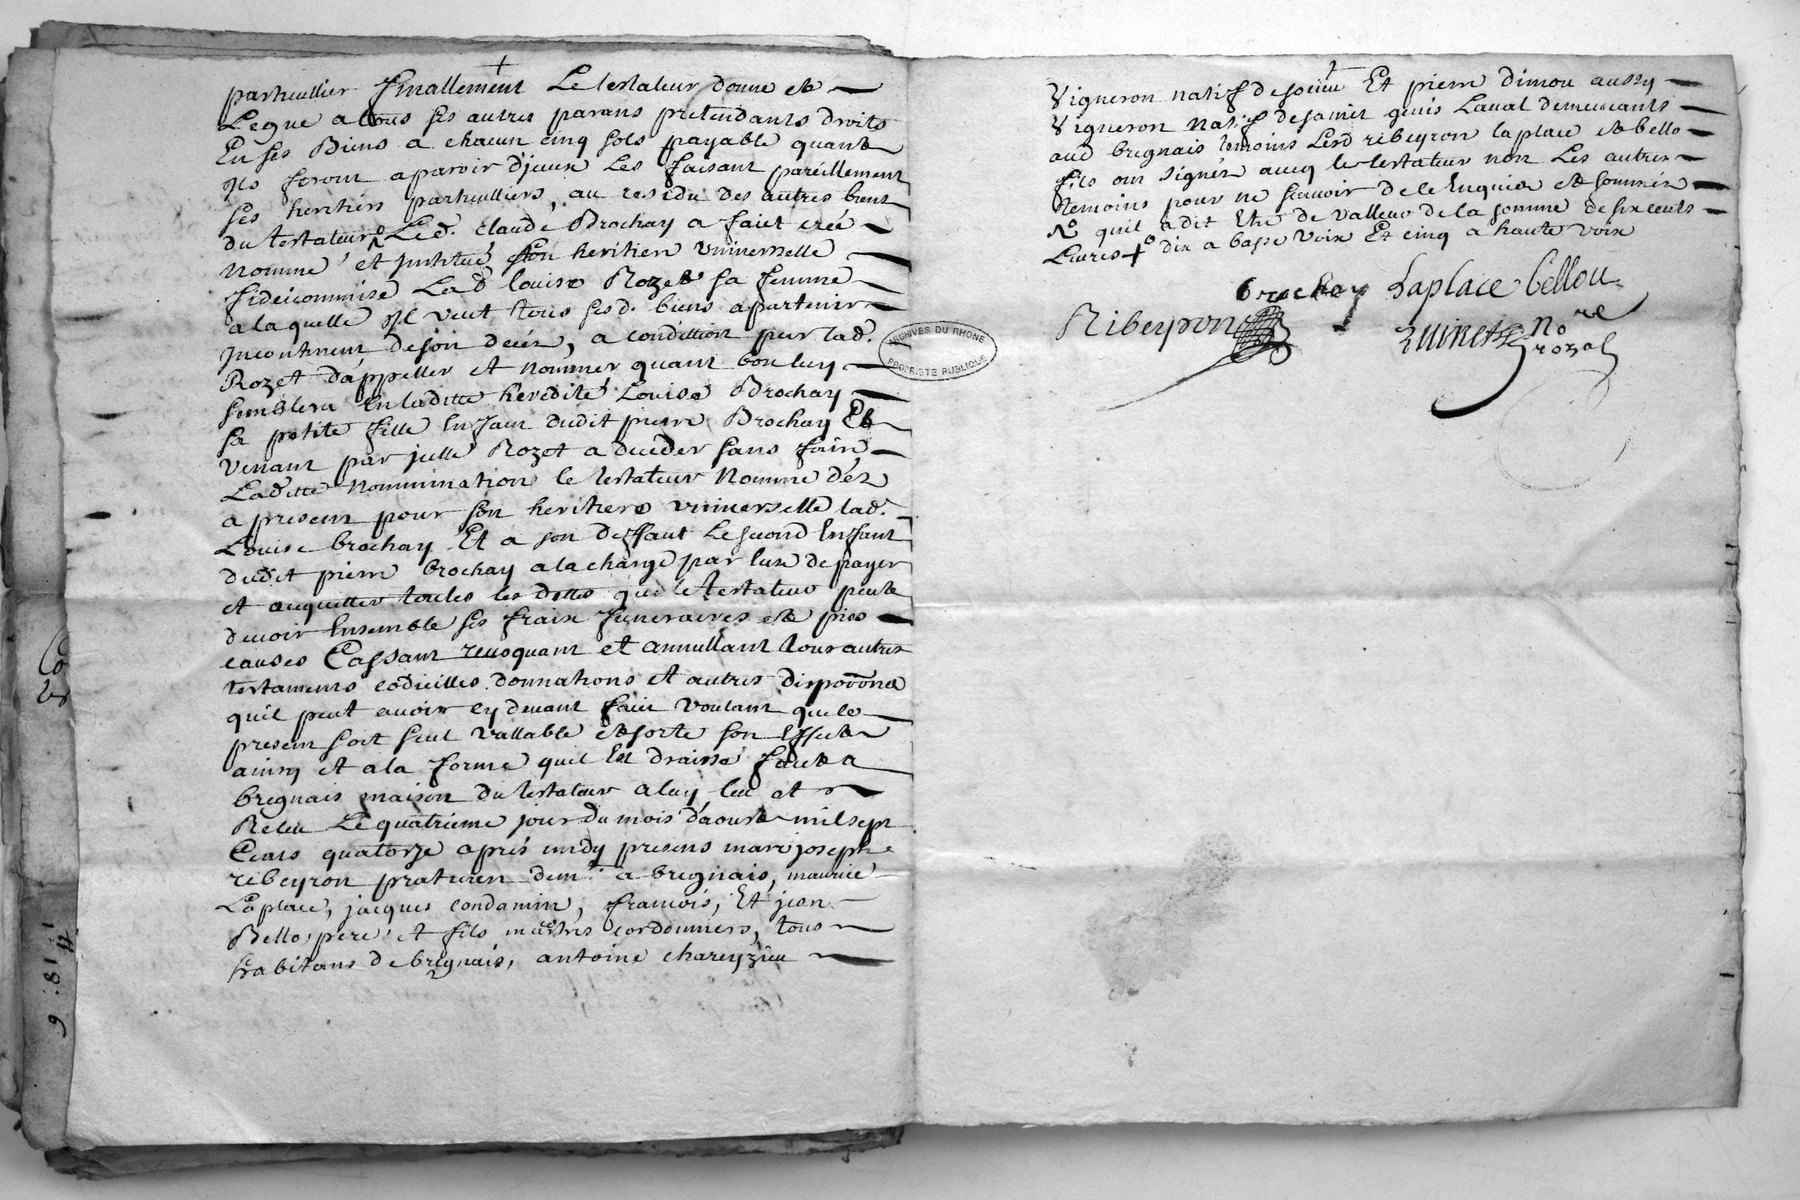 particullier finallement Le testateur donne et
Legue a tous ses autres parans pretendants droits
En ses Biens a chacun cinq sols payable quant
Ils feront aparoir d'jceux Les faisant pareillement
ses heritiers particulliers, au residu des autres biens
du testateur Led. claude Brochay a faict creé
nommé et Institué son heritiere vniverselle
fideicommise Lad louise Rozet sa femme
a laquelle Il veut tous sesd. biens apartenir
Incontinent de son decez, a condition par lad.
Rozet d'appeller et nommer quant bon luy
semblera En laditte heredité Louise Brochay
sa petite fille Enfant dudit pierre Brochay Et
venant par jcelle Rozet a deceder sans faire
Laditte nommination le testateur nomme d'ez
a present pour son heritiere vniverselle lad.
Louise brochay Et a son deffaut Le second Enffant
dudit pierre brochay a la charge par luy de payer
et acquitter toutes les dettes que le testateur peut
devoir Ensemble ses fraix funeraires et pies
causes Cassant revoquant et annullant tous autres
testaments codicilles donnations et autres dispoõne
quil peut avoir cy devant fait voulant que le
present soit seul vallable et sorte son Effect
ainsy et a la forme quil Est draissé fait a
bregnais maison du testateur a luy leu et
Releu Le quatrieme jour du mois d'aoust mil sept
Cents quatorze aprés midy presens marc joseph
ribeyron praticien dem.t a bregnais, maurice
Laplace, jacques condamin, francois, Et jean
Bello, pere et fils maitres cordonniers, tous
habitans de bregnais, antoine chareyzieu
Vigneron natif de soucieu Et pierre dimou aussy
Vigneron natif de saint genis Laval demeurants
aud bregnais temoins Lesd ribeyron laplace et bello
fils ont signéz avec le testateur non Les autres
temoins pour ne scavoir de ce Enquis et sommés
quil a dit Etre de valleur de la somme de six cents
Livres dix a basse voix Et cinq a haute voix
brochay Laplace bellou
Ribeyron
No re
rozal
ARCHIVES DU RHONE
PROPRIÉTÉ PUBLIQUE